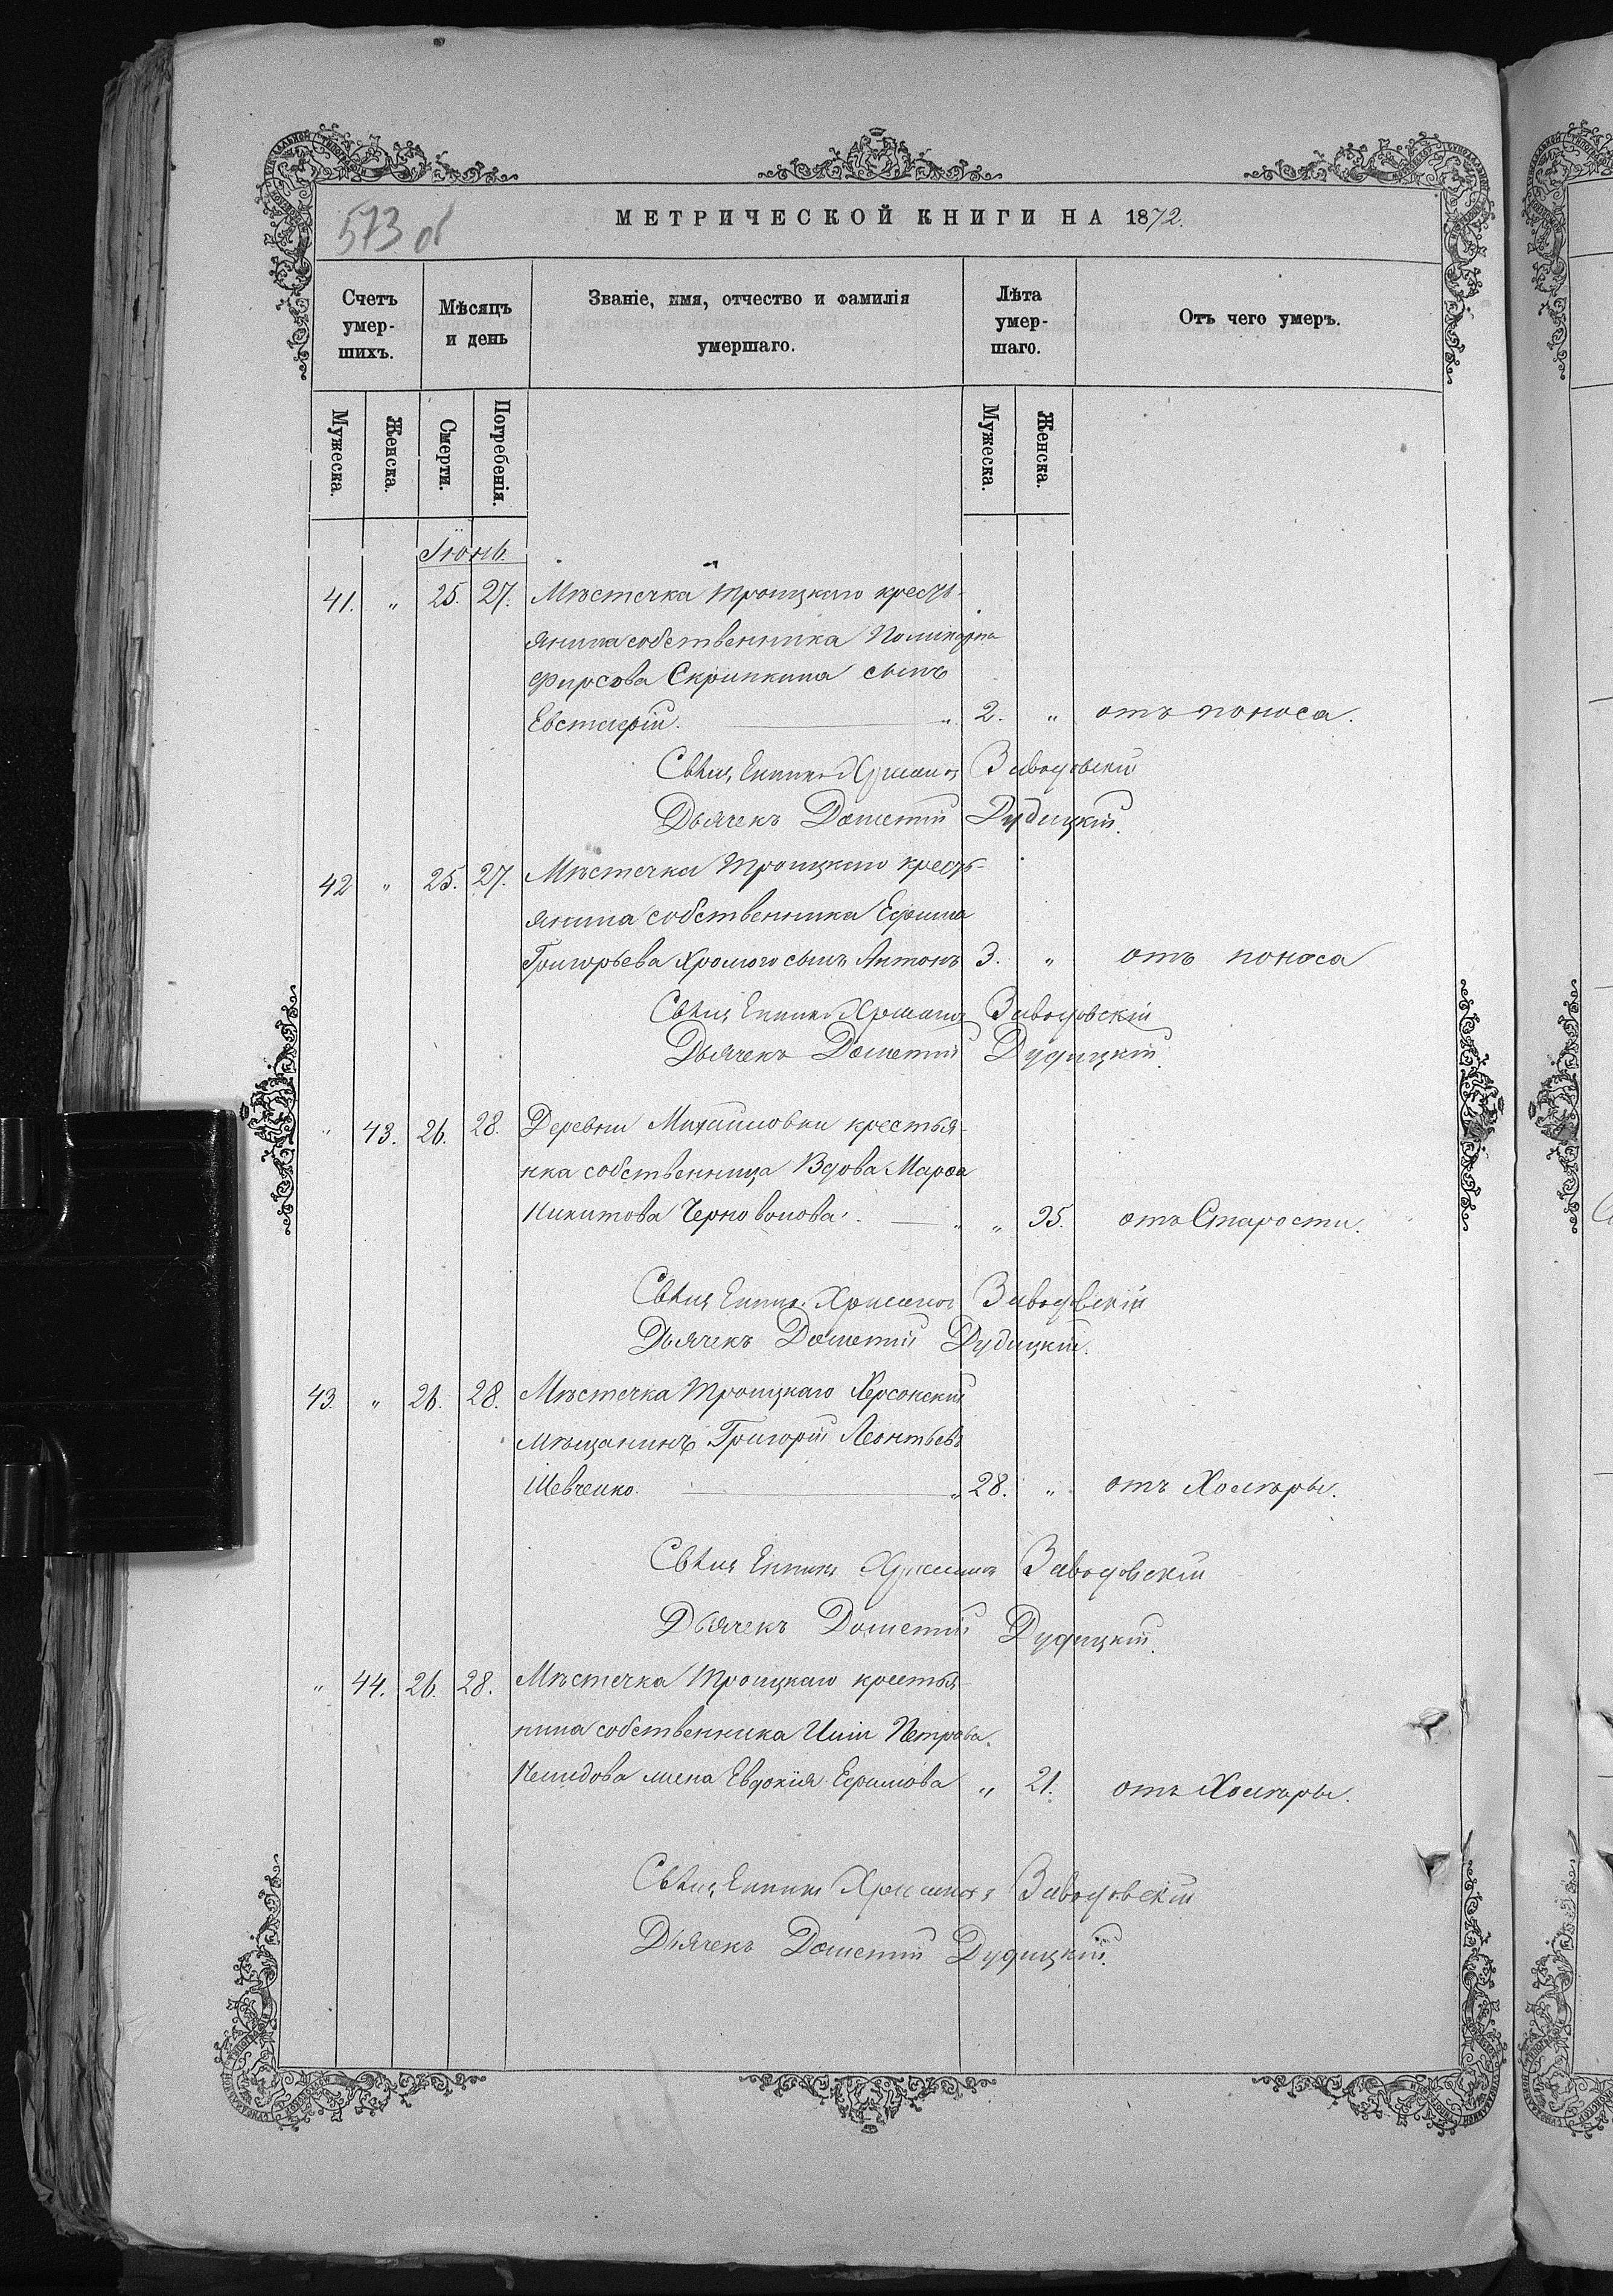 573 об
МЕТРИЧЕСКОЙ КНИГИ НА 1872.
Счетъ умер-шихъ.
Мѣсяцъ и день
Званіе, имя, отчество и фамилія умершаго.
Лѣта умер-шаго.
Отъ чего умеръ.
Мужеска. Женска. Смерти. Погребенія. Мужеска. Женска.
Іюнь.
41. " 25. 27. Мѣстечка Троицкаго кресть-
янина собственника Поликарпа
Фирсова Скрипкина сынъ
Евстафій. " 2. " отъ поноса.
Свящ Заводовскій
Дьячекъ Дометій Дудицкій.
42 " 25. 27. Мѣстечка Троицкаго кресть-
янина собственника Ефима
Григорьева Хромого сынъ Антонъ 3. " отъ поноса
Свящ Заводовскій
Дьячекъ Дометій Дудицкій.
" 43. 26. 28. Деревни Михайловки крестья-
нка собственница Вдова Марѳа
Никитова Черноволова. " " 95. отъ Старости.
Свящ Заводовскій
Дьячекъ Дометій Дудицкій.
43. " 26. 28. Мѣстечка Троицкаго Херсонскій
мѣщанинъ Григорій Леонтьевъ
Шевченко. " 28. " отъ Холеры.
Свящ Заводовскій
Дьячекъ Дометій Дудицкій.
" 44. 26. 28. Мѣстечка Троицкаго крестья-
нина собственника Иліи Петрова
жена Евдокія Ефимова " 21. отъ Холеры.
Свящ Заводовскій
Дьячекъ Дометій Дудицкій.